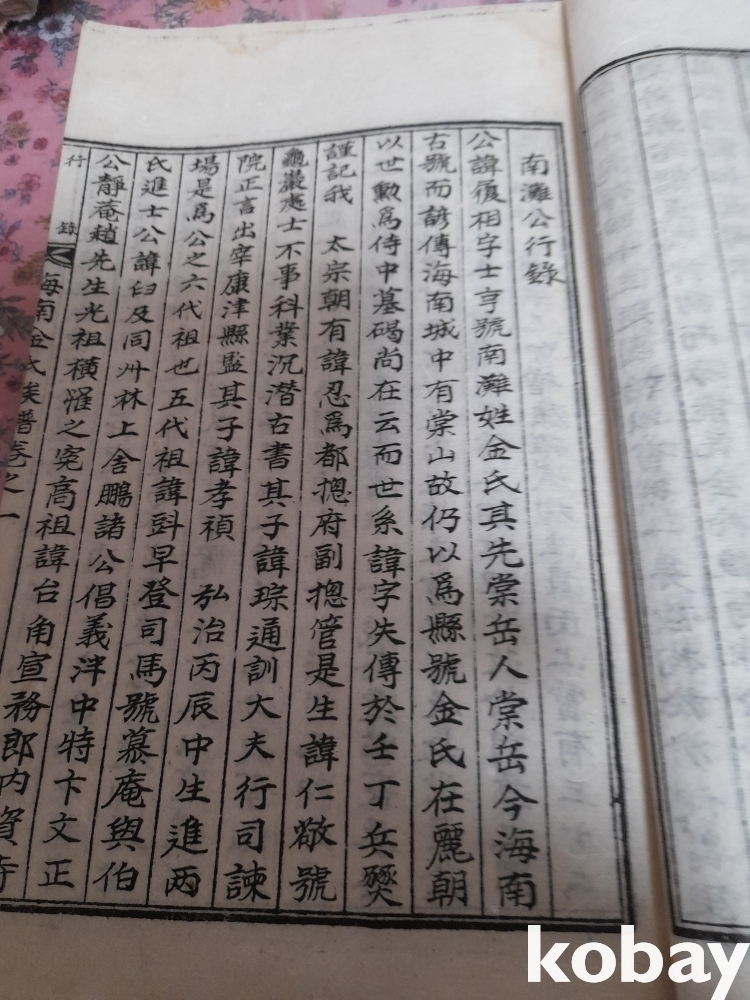 南灘公行錄
公諱復相字士亨號南灘姓金氏其先棠岳人棠岳今海南
古號而諺傳海南城中有棠山故仍以爲縣號金氏在麗朝
以世勳爲侍中墓碣尚在云而世系諱字失傳於壬丁兵燹
謹記我 太宗朝有諱忍爲都摠府副摠管是生諱仁敬號
龜巖處士不事科業沉潛古書其子諱琮通訓大夫行司諫
院正言出宰康津縣監其子諱孝禎 弘治丙辰中生進兩
場是爲公之六代祖也五代祖諱㪷早登司馬號慕庵與伯
氏進士公諱臼及同州林上舍鵬諸公倡義泮中特卞文正
公靜菴趙先生光祖橫罹之寃高祖諱台角宣務郎內資寺
行錄 海南金氏族譜卷之一
kobay